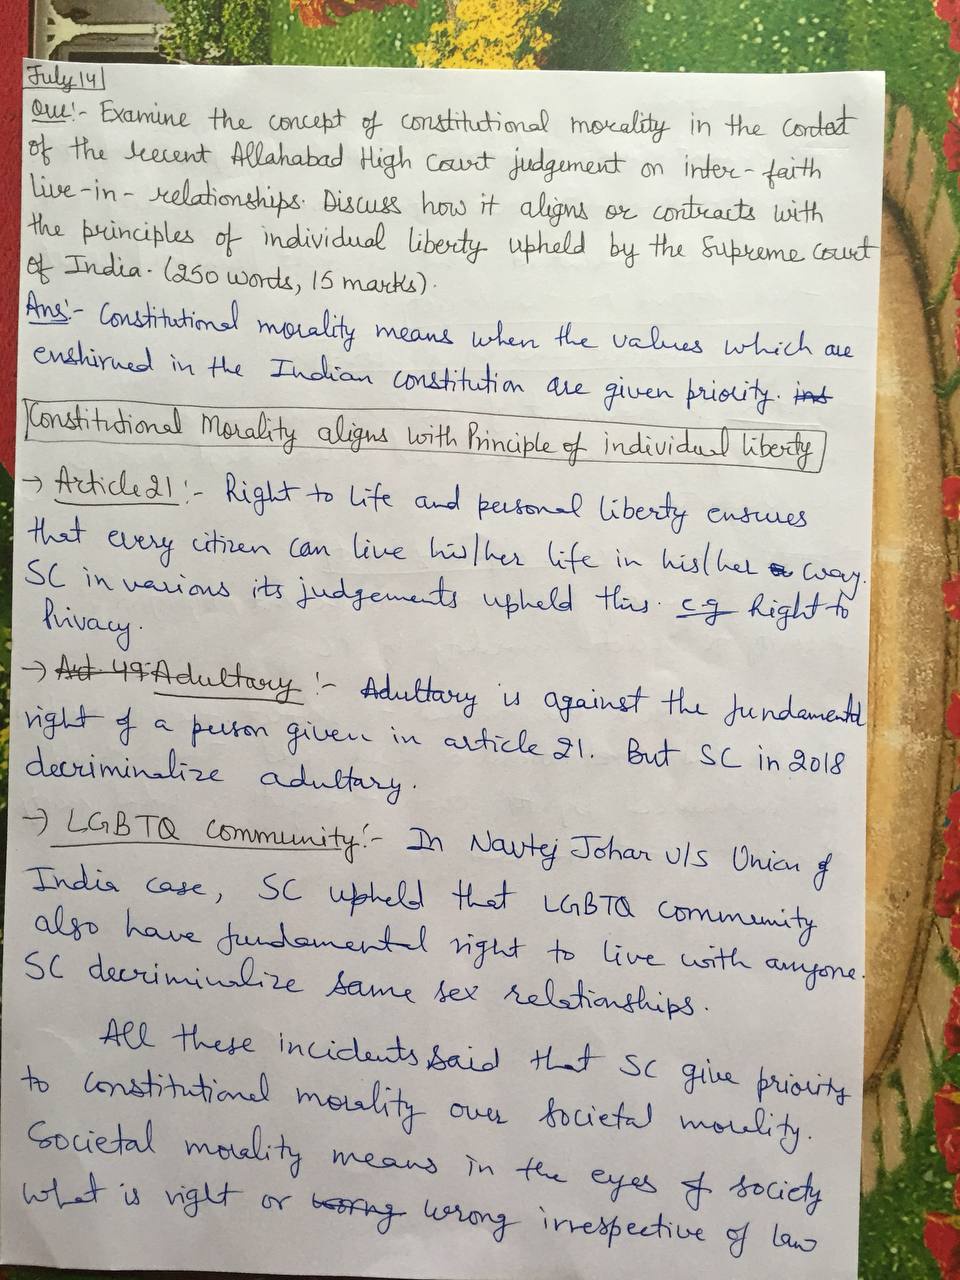 July 14
Que:- Examine the concept of constitutional morality in the context
of the recent Allahabad High Court judgement on inter-faith
live-in-relationships. Discuss how it aligns or contracts with
the principles of individual liberty upheld by the Supreme Court
of India. (250 words, 15 marks).
Ans:- Constitutional morality means when the values which are
enshirned in the Indian constitution are given priority. ins
Constitutional Morality aligns with Principle of individual liberty
→ Article 21:- Right to life and personal liberty ensures
that every citizen can live his/her life in his/her a way.
SC in various its judgements upheld this. e.g Right to
Privacy.
→ Art 49 Adultary :- Adultary is against the fundamental
right of a person given in article 21. But SC in 2018
decriminalize adultary.
→ LGBTQ Community:- In Navtej Johar v/s Union of
India case, SC upheld that LGBTQ community
also have fundamental right to live with anyone.
SC decriminalize same sex relationships.
All these incidents said that SC give priority
to constitutional morality over societal morality.
Societal morality means in the eyes of society
what is right or worng wrong irrespective of law